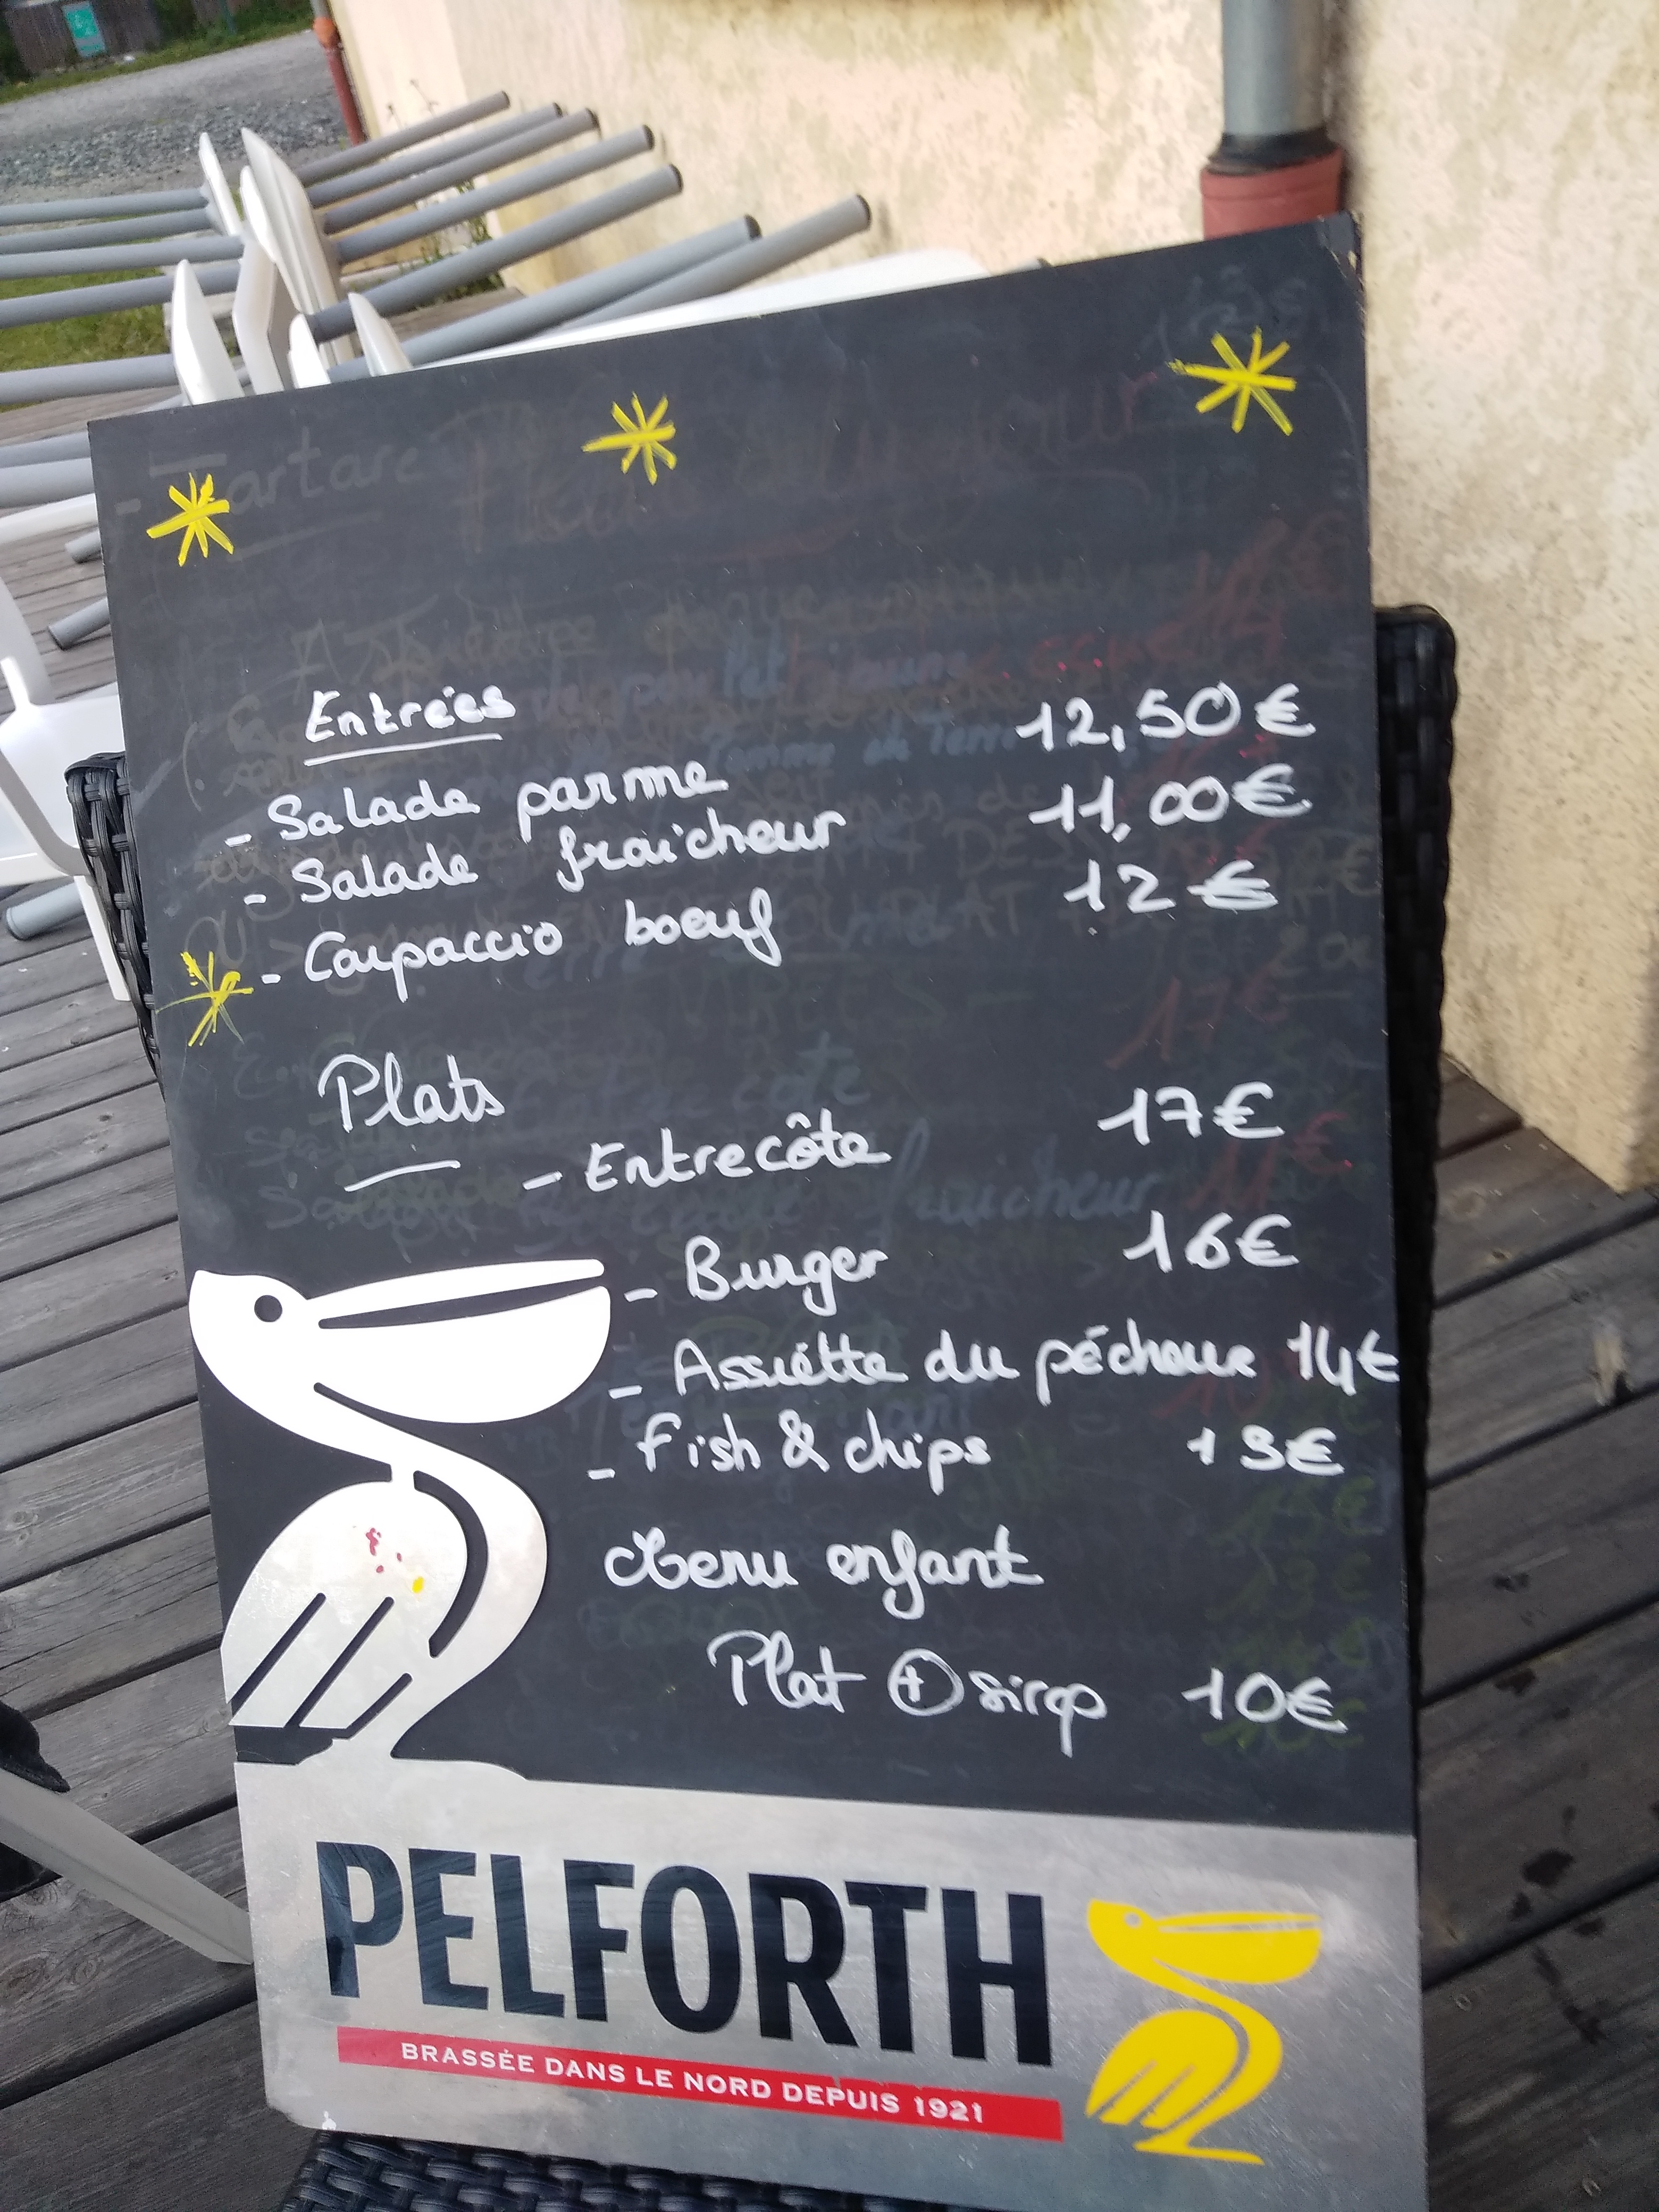 Entrées
- Salade parme 12,50 €
- Salade fraicheur 11,00 €
- Carpaccio boeuf 12 €
Plats
- Entrecôte 17 €
- Burger 16 €
- Assiétte du pécheur 14 €
- Fish & chips 13 €
Menu enfant
Plat + sirop 10 €
PELFORTH
BRASSÉE DANS LE NORD DEPUIS 1921